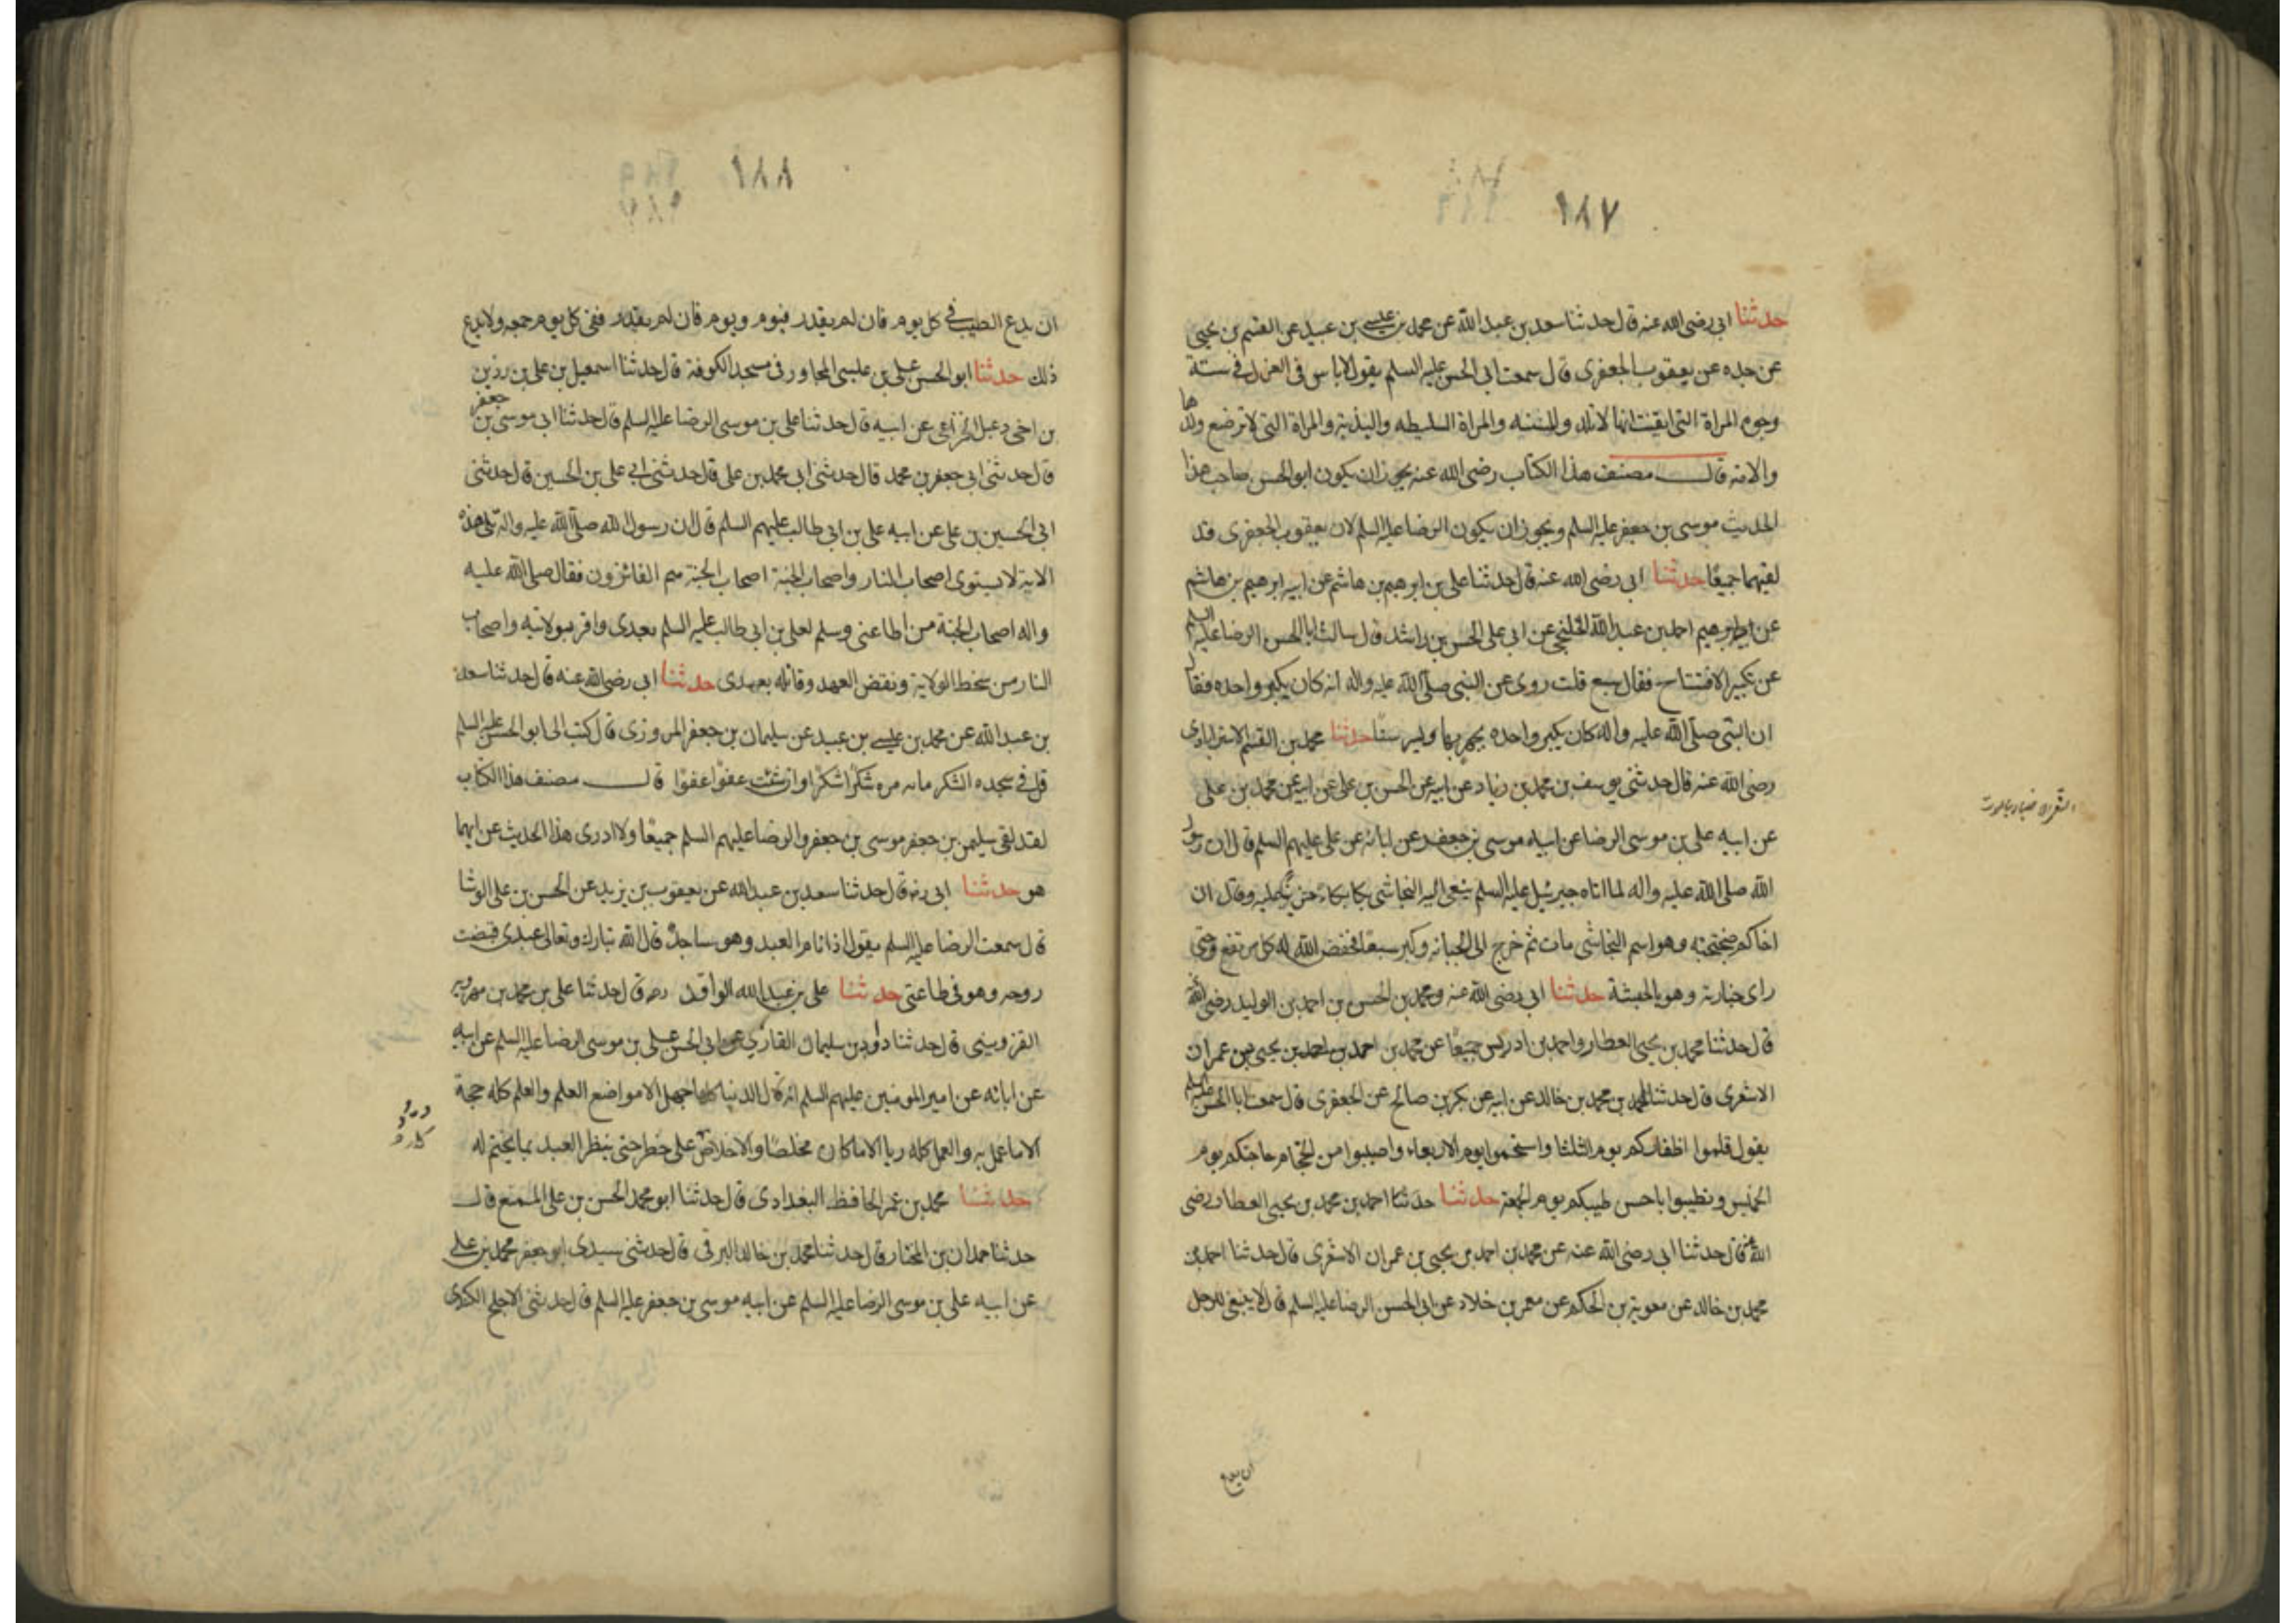 ١٨٧
حدثنا ابى رضى الله عنه قال حدثنا سعد بن عبد الله عن محمد بن عيسى بن عبيد عن القسم بن يحيى
عن جده عن يعقوب الجعفرى قال سمعت ابى الحسن عليه السلم يقول لاباس فى العزل فى ستة
وجوه المراة التى ايقنت انها لا تلد والمسنه والمراة السليطه والبذية والمراة التى لا ترضع ولدها
والامة قال مصنف هذا الكتاب رضى الله عنه يجوز ان يكون ابو الحسن صاحب هذا
الحديث موسى بن جعفر عليه السلم ويجوز ان يكون الرضا عليه السلم لان يعقوب الجعفرى قد
لقيهما جميعًا حدثنا ابى رضى الله عنه قال حدثنا على بن ابرهيم بن هاشم عن ابيه ابرهيم بن هاشم
عن ابرهيم احمد بن عبد الله الخلنجى عن ابى على الحسن بن راشد قال سالت ابا الحسن الرضا عليه السلم
عن تكبير الافتتاح فقال سبع قلت روى عن النبى صلى الله عليه واله انه كان يكبر واحده فقال
ان النبى صلى الله عليه واله كان يكبر واحده يجهر بها ويسر ستا حدثنا محمد بن القسم الاسترابادى
رضى الله عنه قال حدثنى يوسف بن محمد بن زياد عن ابيه عن الحسن بن على عن ابيه عن محمد بن على
عن ابيه على بن موسى الرضا عن ابيه موسى بن جعفر عن ابائه عن على عليهم السلم قال ان رسول
الله صلى الله عليه واله لما اتاه جبرئيل عليه السلم ينعى اليه النجاشى بكا بكاء حزين عليه وقال ان
اخاكم وهو اسم النجاشى مات ثم خرج الى الجبانه وكبر سبعا فخفض الله له كل مرتفع حتى
راى جنازته وهو بالحبشة حدثنا ابى رضى الله عنه ومحمد بن الحسن بن احمد بن الوليد رضى الله
قال حدثنا محمد بن يحيى العطار واحمد بن ادريس جميعًا عن محمد بن احمد بن احمد بن يحيى بن عمران
الاشعرى قال حدثنا احمد بن محمد بن خالد عن ابيه عن بكر بن صالح عن الجعفرى قال سمعت ابا الحسن عليه السلم
يقول قلموا اظفاركم يوم الثلثا واستحموا يوم الاربعاء واصيبوا من الحجام حاجتكم يوم
الخميس وتطيبوا باحسن طيبكم يوم الجمعة حدثنا حدثنا احمد بن محمد بن يحيى العطار رضى
الله عنه قال حدثنا ابى رضى الله عنه عن محمد بن احمد بن يحيى بن عمران الاشعرى قال حدثنا احمد بن
محمد بن خالد عن معوية بن الحكم عن معمر بن خلاد عن ابى الحسن الرضا عليه السلم قال لا ينبغى للرجل
ان يدع
١٨٨
ان يدع الطيب فى كل يوم فان لم يقدر فيوم ويوم فان لم يقدر ففى كل يوم جمعه ولا يدع
ذلك حدثنا ابو الحسن على بن عيسى المجاور فى مسجد الكوفة قال حدثنا اسمعيل بن على بن رزين
بن اخى دعبل الخزاعى عن ابيه قال حدثنا على بن موسى الرضا عليه السلم قال حدثنا ابى موسى بن جعفر
قال حدثنى ابى جعفر بن محمد قال حدثنى ابى محمد بن على قال حدثنى ابى على بن الحسين قال حدثنى
ابى الحسين بن على عن ابيه على بن ابى طالب عليهم السلم قال ان رسول الله صلى الله عليه واله تلى هذه
الاية لا يستوى اصحاب النار واصحاب الجنة اصحاب الجنة هم الفائزون فقال صلى الله عليه
واله اصحاب الجنة من اطاعنى وسلم لعلى بن ابى طالب عليه السلم بعدى واقر بولايته واصحاب
النار من سخط الولاية ونقض العهد وقاتله بعدى حدثنا ابى رضى الله عنه قال حدثنا سعد
بن عبد الله عن محمد بن عيسى بن عبيد عن سليمان بن جعفر المروزى قال كتب الى ابو الحسن عليه السلم
قل فى سجده الشكر مائه مره شكرًا شكرًا وان شئت عفوًا عفوًا قال مصنف هذا الكتاب
لقد لقى سليمن بن جعفر موسى بن جعفر والرضا عليهم السلم جميعًا ولا ادرى هذا الحديث عن ايهما
هو حدثنا ابى ره قال حدثنا سعد بن عبد الله عن يعقوب بن يزيد عن الحسن بن على الوشا
قال سمعت الرضا عليه السلم يقول اذا نام العبد وهو ساجد قال الله تبارك وتعالى عبدى قبضت
روحه وهو فى طاعتى حدثنا على بن عبد الله الوراق ره قال حدثنا على بن محمد بن مهرويه
القزوينى قال حدثنا داود بن سليمان الغازى عن ابى الحسن على بن موسى الرضا عليه السلم عن ابيه
عن ابائه عن امير المومنين عليهم السلم انه قال الدنيا كلها جهل الا مواضع العلم والعلم كله حجة
الا ما عمل به والعمل كله ريا الا ما كان مخلصًا والاخلاص على خطر حتى ينظر العبد بما يختم له
حدثنا محمد بن عمر الحافظ البغدادى قال حدثنا ابو محمد الحسن بن على قال
حدثنا حمدان بن المختار قال حدثنا محمد بن خالد البرقى قال حدثنى سيدى ابو جعفر محمد بن على
عن ابيه على بن موسى الرضا عليه السلم عن ابيه موسى بن جعفر عليه السلم قال حدثنى الاجلح الكندى